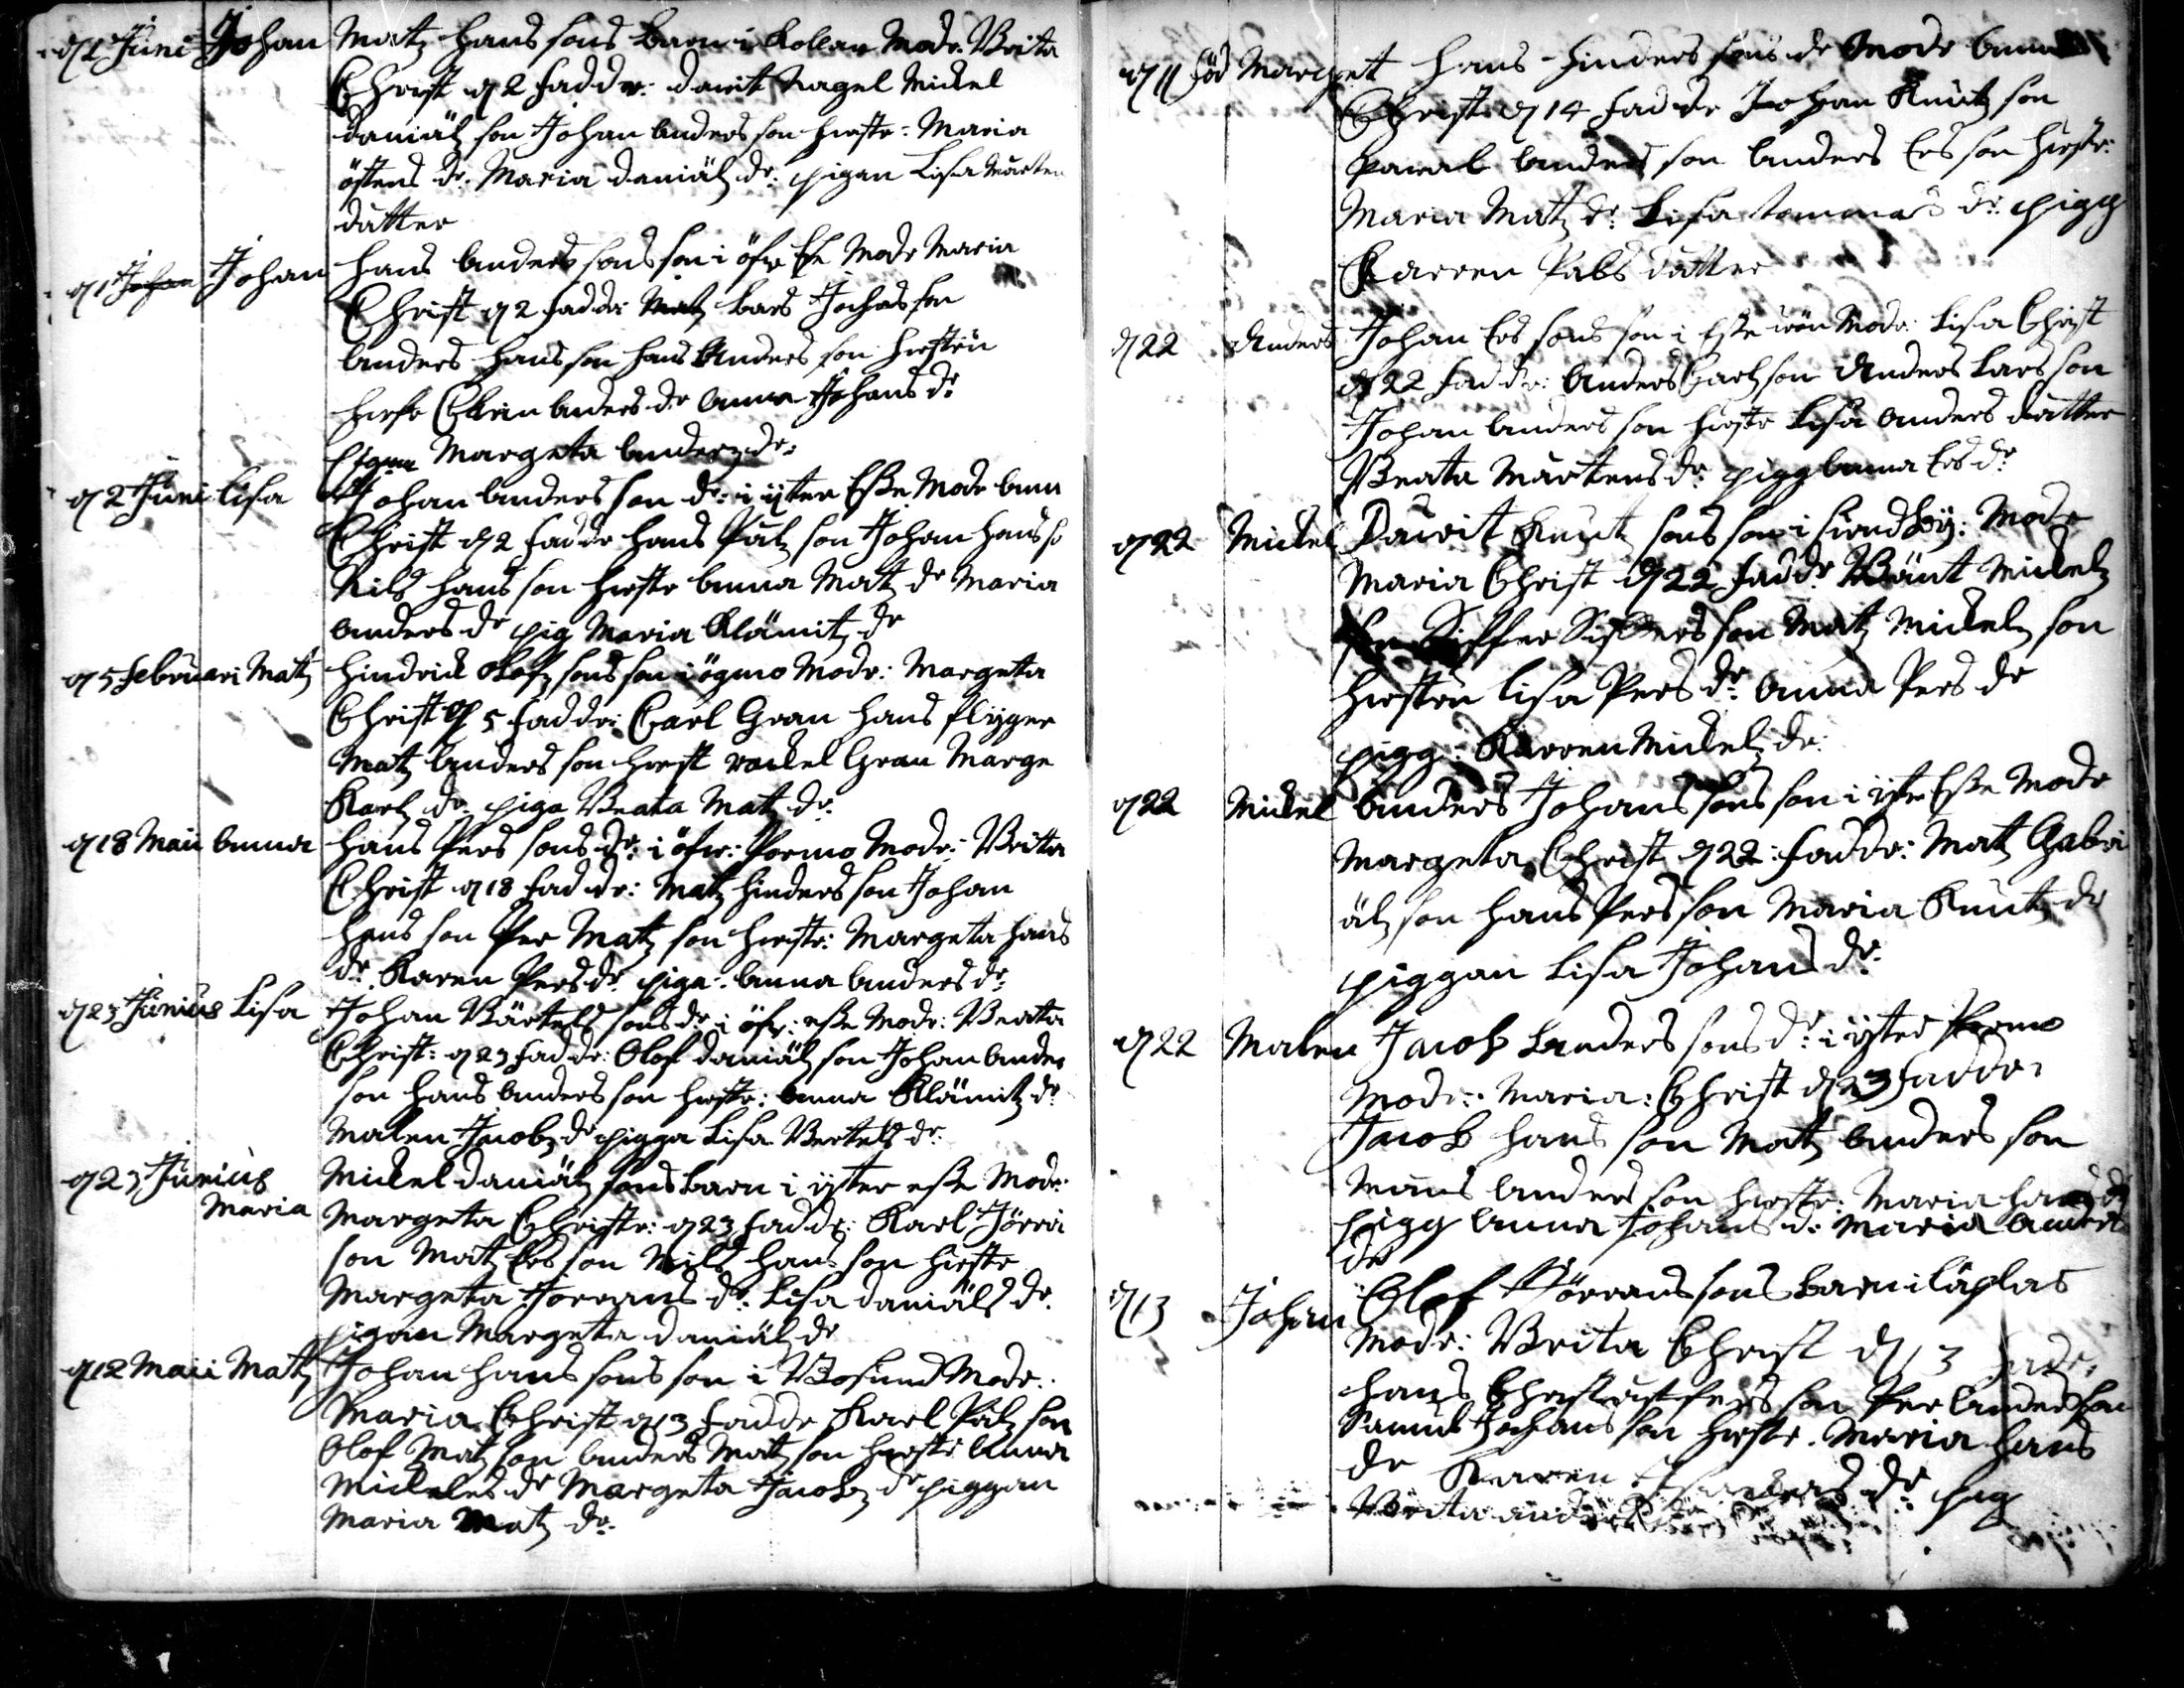 d 1 Juni Johan Matz Hans sons barn i Kollan Modr. Brita
Christ d 2 faddr: davit Nagel Mickel
daniälz son Johan anders son hustr: Maria
östens dr. Maria daniälz dr: pigan Lisa Mårten
dåtter
d 1 Johan Hans anders sons son i öfr Esse Modr Maria
Christ d 2 faddr: Matz Lars Johans son
anders hans son hans anders son hustru
anders dr anna Johans dr
pigan Margeta anderz dr:
d 2 Juni Lisa Johan anders son dr: i ijter Esse Modr anna
Christ d 2 faddr hans Pålz son Johan hans so
Nils hans son hustr anna Matz dr Maria
anders dr pig Maria Klämitz dr
d 5 februari Matz Hindrick olofz sons son i ögmo Modr: Margeta
Christ d 5 faddr: Carl Gran hans flyger
Matz anders son hust rackel Gran Marge
Karlz dr piga Beata Matz dr:
d 18 Maii anna hans Pers sons dr: i öfr: Pormo Modr: Britta
Christ d 18 faddr: Matz hinders son Johan
hans son Per Matz son hustr: Margeta hans
dr. Karen Pers dr. piga: anna anders dr:
d 23 Junius Lisa Johan Bärtels sons dr: i öfr: esse Modr: Beata
Christ: d 23 faddr: Olof daniälz son Johan ander
son hans anders son hustr: anna Klämitz dr
Malen Jacobz dr pigga Lisa Bertels dr:
d 23 Junius Mickel daniälz sons barn i ijter esse Modr:
Maria Margeta Christr: d 23 faddr: Karl Jörra
son Matz Ers son Nils hans son hustr
Margeta Jörrans dr: Lisa daniäls dr.
pigan Margeta daniälz dr
d 12 Maii Matz Johan hans sons son i Bosund Modr:
Maria Christ d 13 faddr Karl Pålz son
Olof Matz son anders Matz son hustr anna
Mickels dr Margeta Jacobz dr piggan
Maria Matz dr.
d 11 föd Marget hans hinders sons dr Modr anna
Christ d 14 faddr Johan Knutz son
Pawal anders son anders Ers son hustr:
Maria Matz dr. Lisa tommas dr. pigg
Karren Pals dåtter
d 22 Anders Johan Ers sons son i Esse Modr: Lisa Christ
d 22 faddr: anders Carlz son Anders Lars son
Johan anders son hustr Lisa anders dåtter
Beata Mårtens dr: pigg anna Ers dr
d 22 Mickel Dawit Knutz sons son i sundby: Modr
Maria Christ d 22 faddr Bänt Mickelz
son Siffer Siffers son Matz Mickelz son
hustru Lisa Pers dr: anna Pers dr
pigg: Karren Mickelz dr:
d 22 Mickel anders Johans sons son i ijtr Esse Modr
Margeta Christ d 22: faddr: Matz Gabri
älz son hans Pers son Maria Knutz dr
piggan Lisa Johans dr:
d 22 Malen Jacob anders sons dr i ijter Pormo
Modr: Maria: Christ d 23 faddr:
Jacob hans son Matz anders son
Måns anders son hustr: Maria hans dr
pigg anna Johans dr: Maria anders
dr
d 13 Johan Olof Jörrans sons barn i
Modr: Brita Christ d 13 fadr:
hans son Per anders son
Samuel Johans son hustr. Maria hans
dr Karen dr: pig
Brita anders